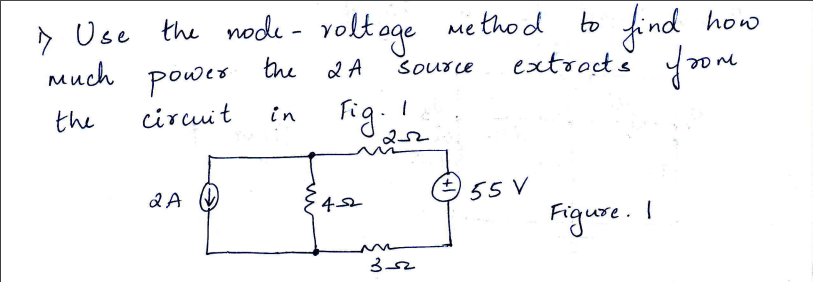 1) Use the node-voltage method to find how
much power the 2A source extracts from
the circuit in Fig. 1
2Ω
2A
4Ω
+-
55 V
Figure. 1
3Ω